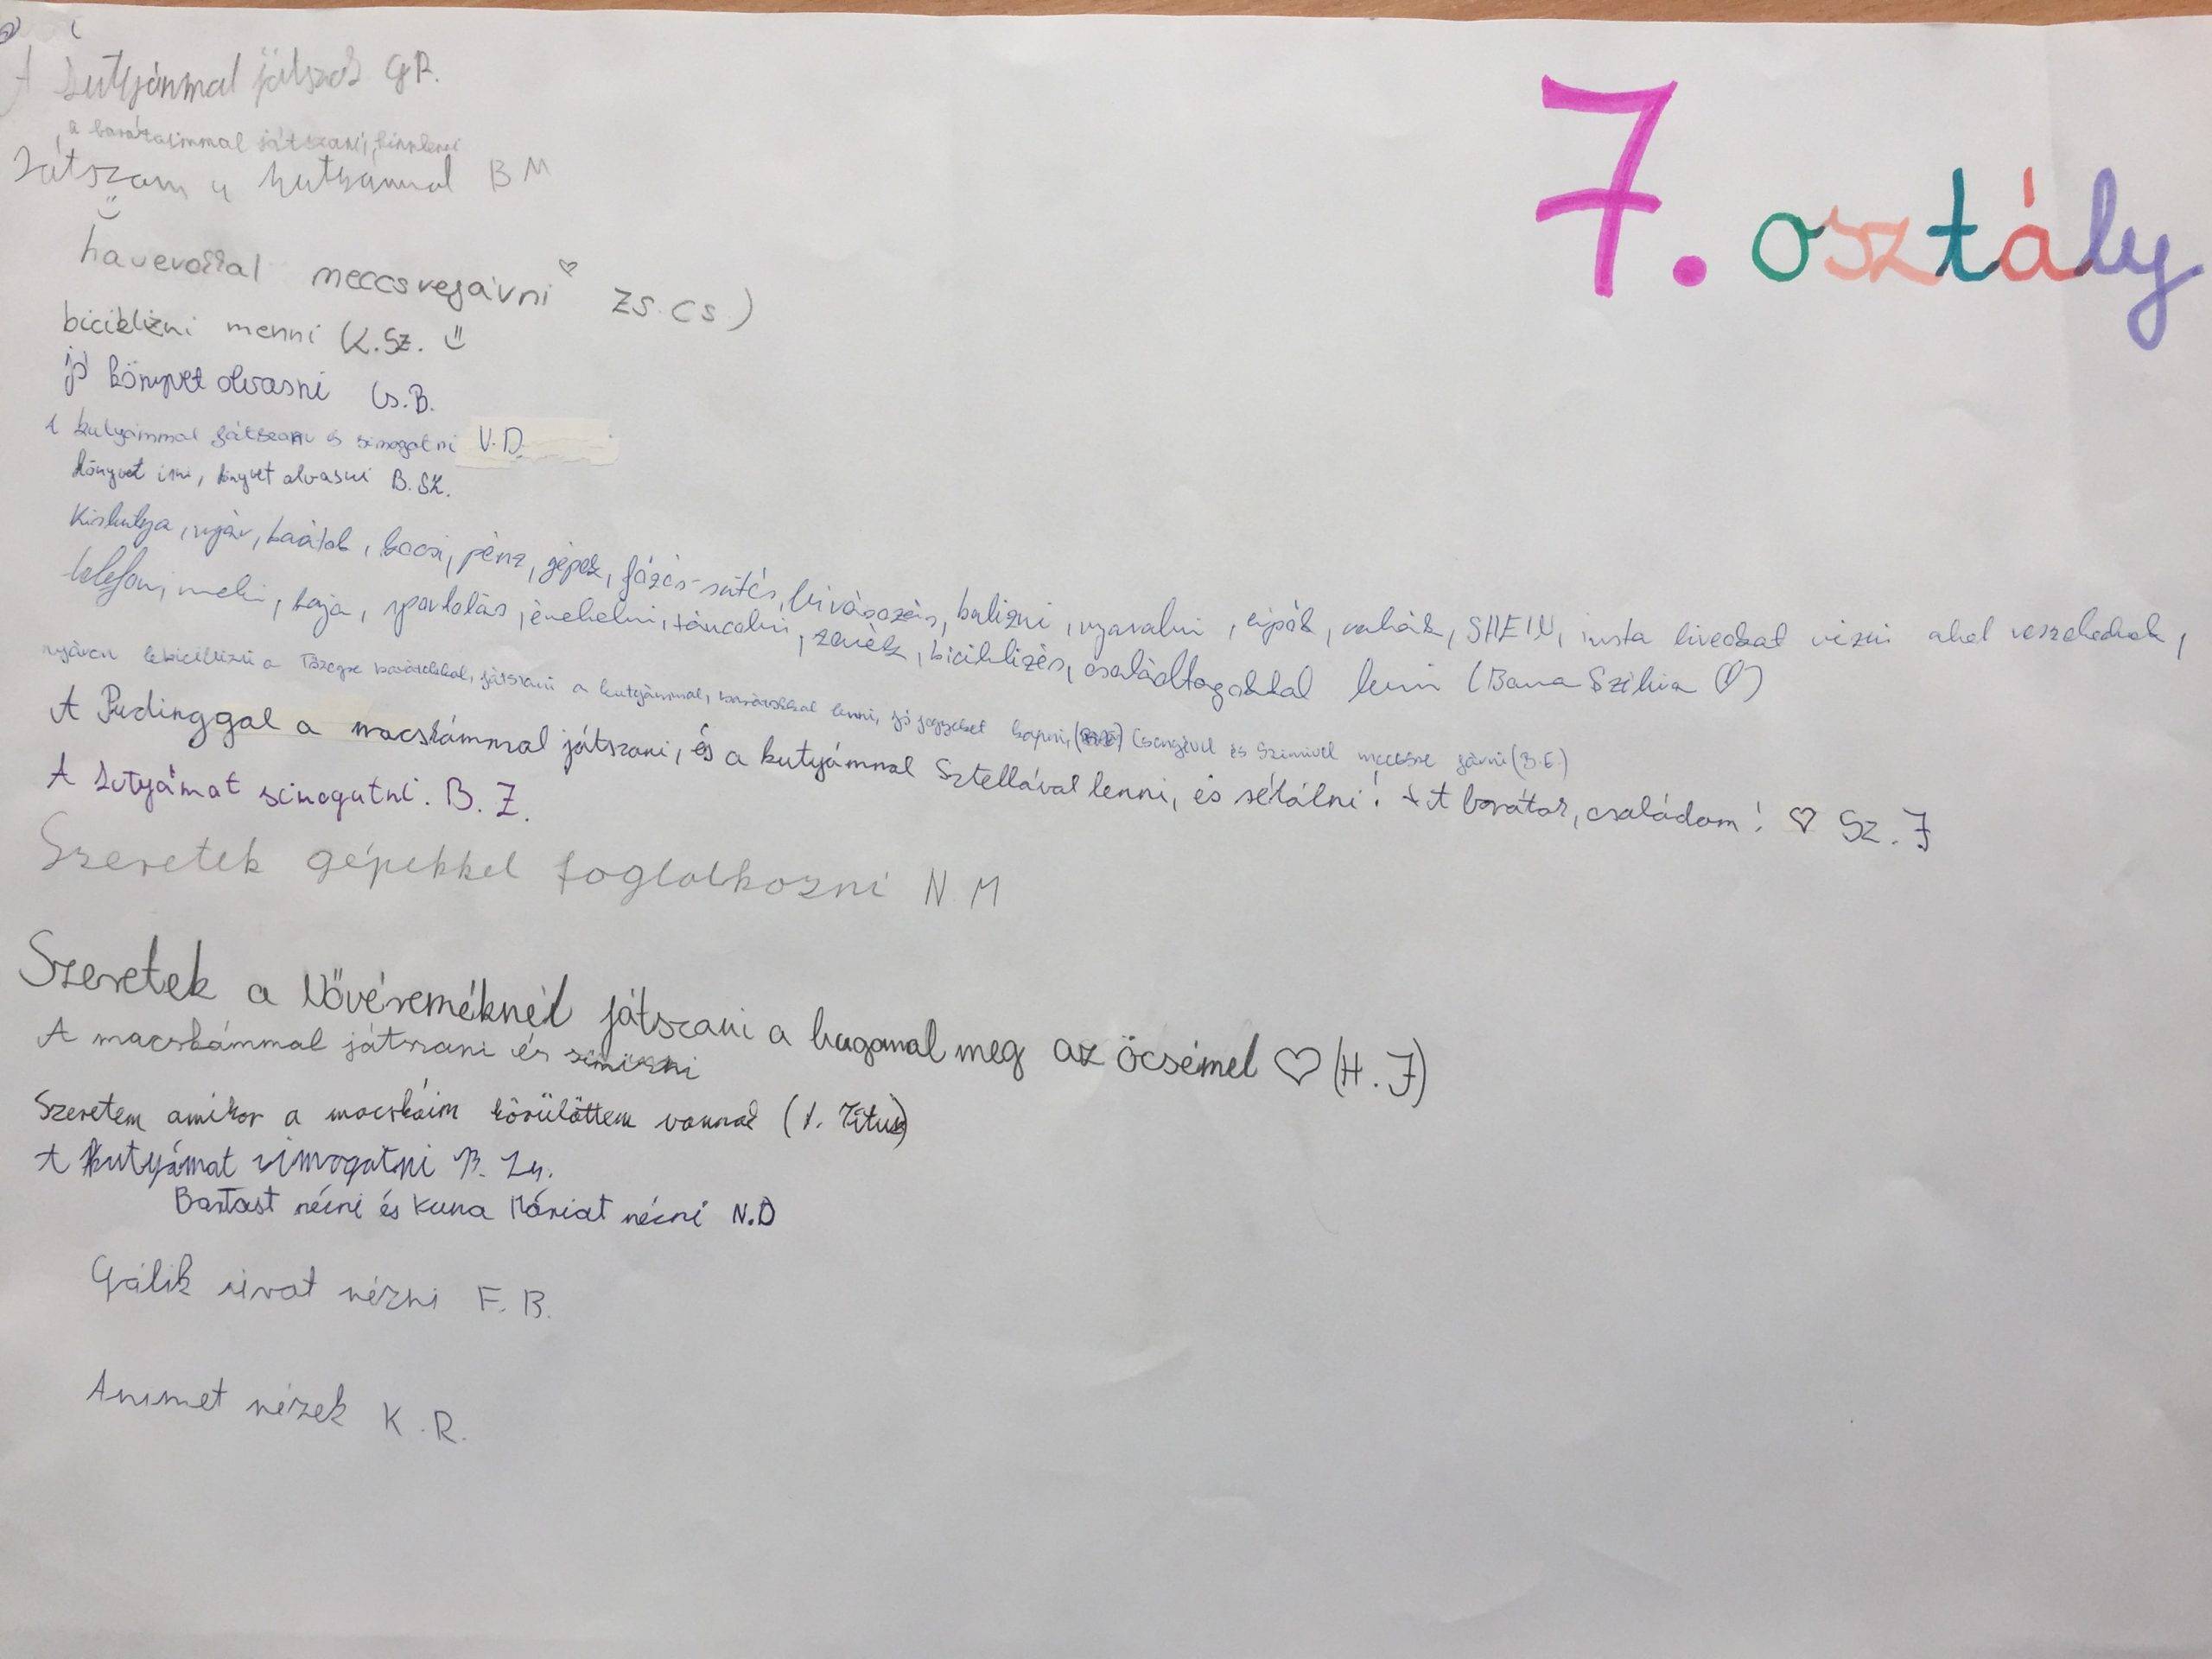 7. osztály
A kutyámmal játszok GR.
a barátaimmal játszani,
Játszam a kutyámmal BM
haverokkal meccsrejárni ♡ ZS. CS.)
biciklizni menni K.Sz.
jó könyvet olvasni Cs.B.
A kutyámmal játszani és simogatni V.D.
könyvet írni, könyvet olvasni B.SZ.
Kiskutya, nyár, barátok, kocsi, pénz, gépek, főzés-sütés, bulizni, nyaralni, cipők, ruhák, SHEIN, insta liveokat nézni ahol veszekednek,
telefon, meki, kaja, sportolás, énekelni, táncolni, zenék, biciklizés, családtagokkal lenni
nyáron barátokkal, játszani a kutyámmal, barátokkal lenni, jó jegyeket kapni, és meccsre járni (B.E.)
A Pudinggal a macskámmal játszani, és a kutyámmal Sztellával lenni, és sétálni! + A barátok, családom! ♡ Sz. J
A kutyámat simogatni. B. Z.
Szeretek gépekkel foglalkozni N M
Szeretek a Nővéreméknél játszani a hugomal meg az öcsémel ♡ (H. J)
A macskámmal játszani és
Szeretem amikor a macskáim körülöttem vannak Titusz)
A kutyámat simogatni B.
nézni és Máriat nézni N.D
Gálik nézni F. B.
Animet nézek K.R.